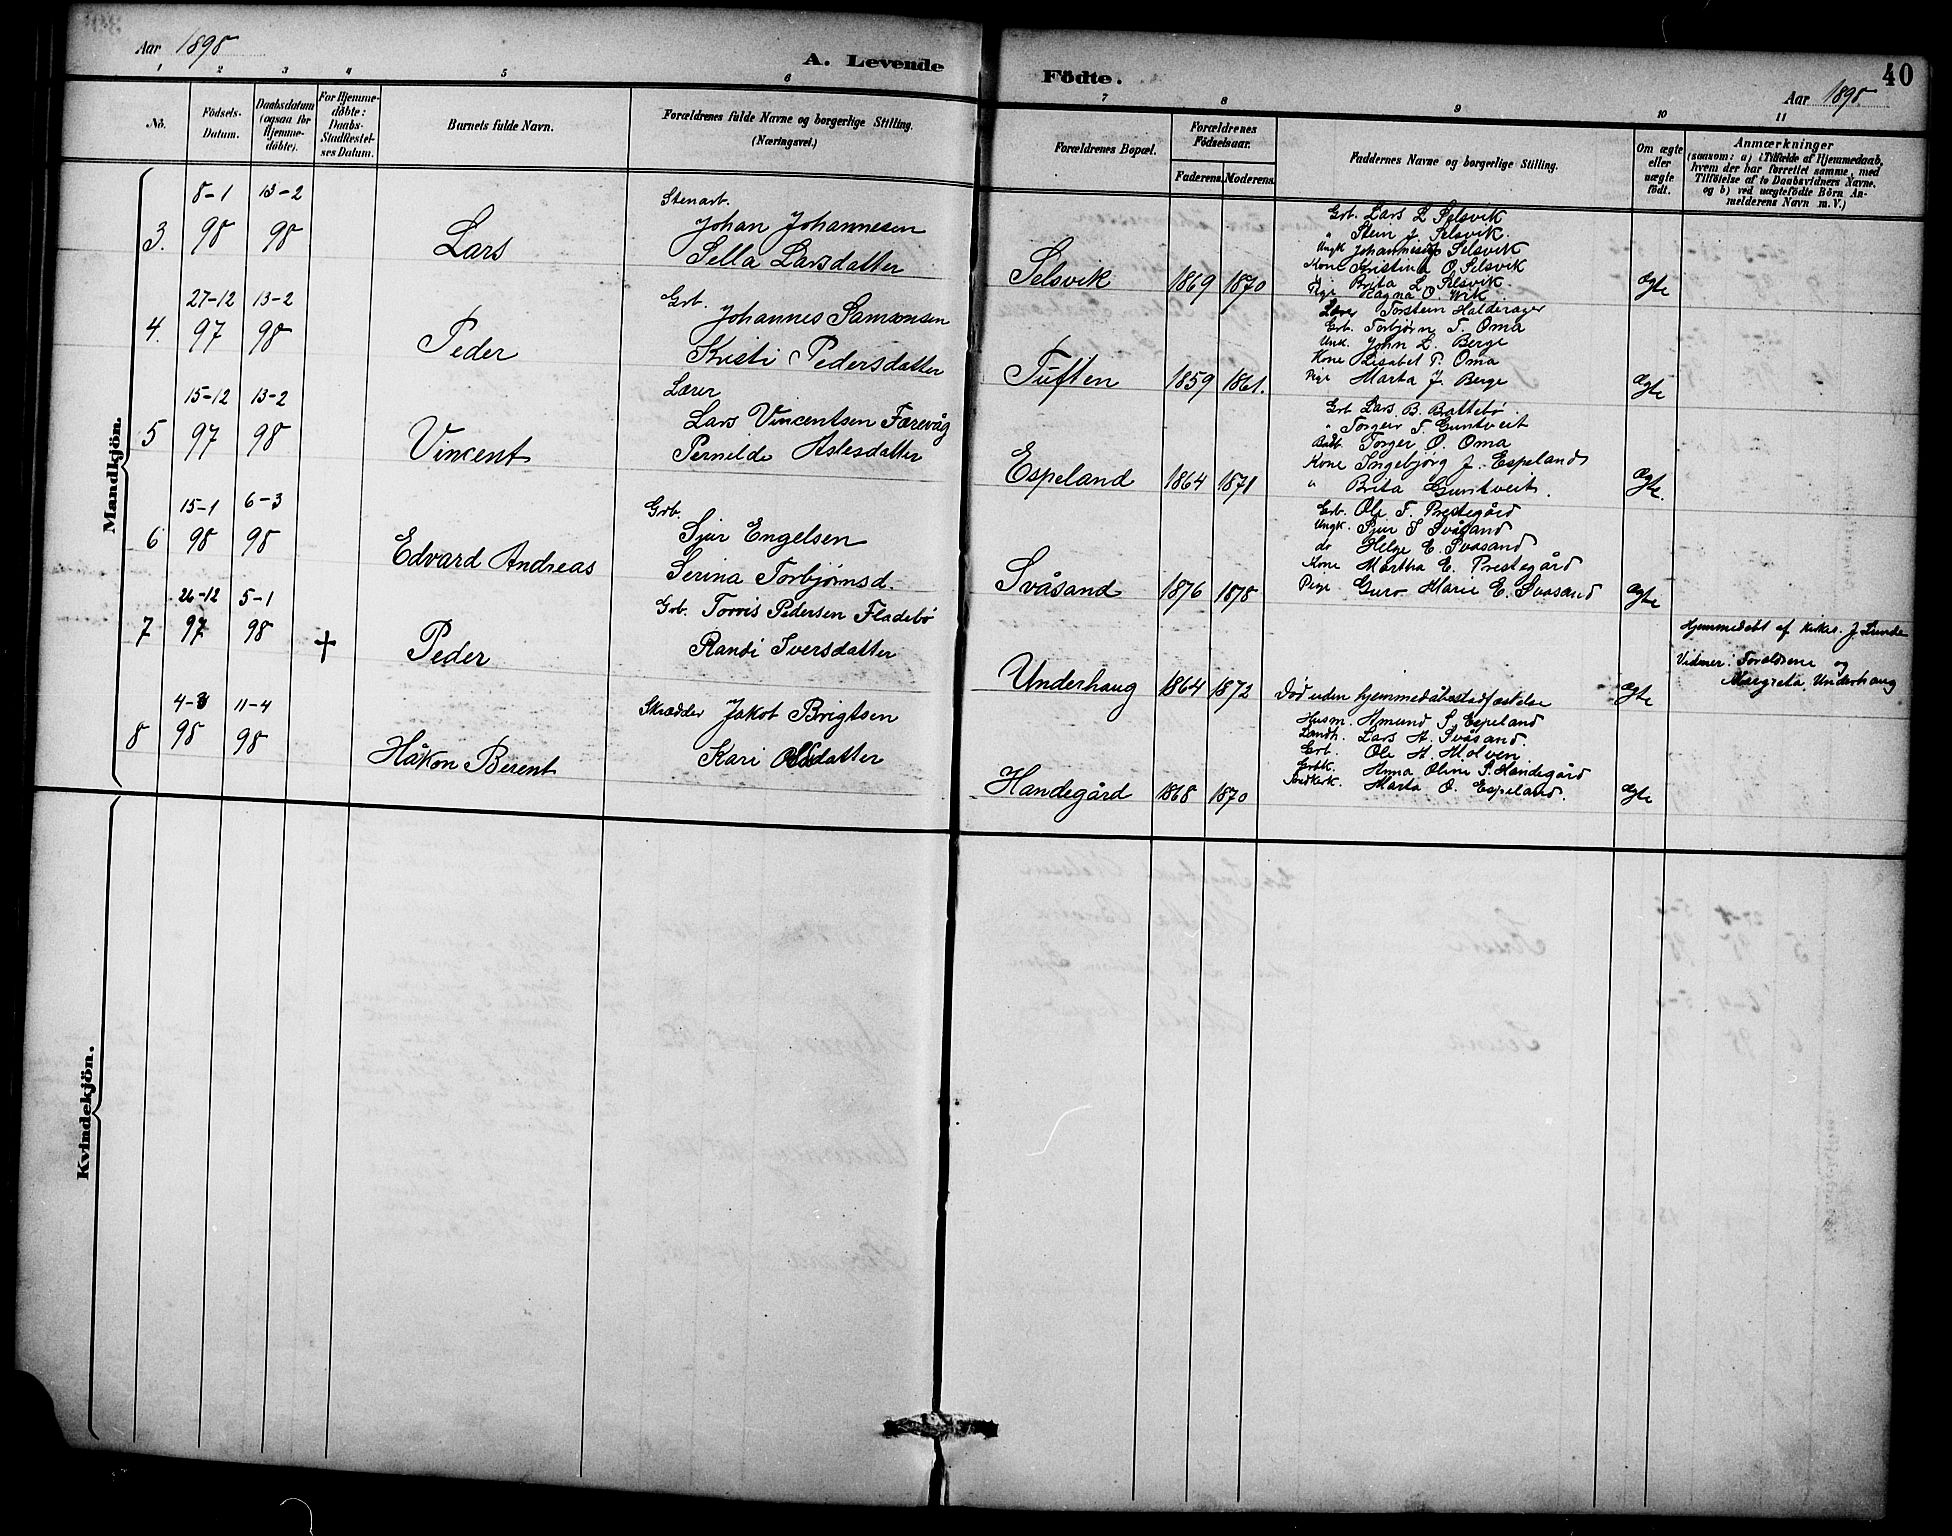 Aar 1898
A. Levende
Födte.
Aar 1898.
40
1 2 3 4 5 6 7 8 9 10 11
No.
Födsels-Datum.
Daabsdatum (ogsaa for Hjemme-döbte).
For Hjemme-döbte: Daabs-Stadfæstel-ses Datum.
Barnets fulde Navn.
Forældrenes fulde Navne og borgerlige Stilling.
(Næringsvei.)
Forældrenes Bopæl.
Forældrenes Födselsaar.
Faderens. Moderens.
Faddernes Navne og borgerlige Stilling.
Om ægte eller uægte födt.
Anmærkninger
(saasom: a) i Tilfælde af Hjemmedaab,
hvem der har forrettet samme, med
Tilföielse af to Daabsvidners Navne.
og b) ved uægtefödte Börn An-
melderens Navn m. V.)
Mandkjön.
3. 8-1 98 13-2 98
Lars
Stenarb.
Johan Johannesen
Sella Larsdatter
Selsvik 1869 1870
Grb. Lars L Selsvik
" Stein J. Selsvik.
Ungk Johannes Selsvik
Kone Kristina O. Selsvik
Pige Brita L Selsvik.
Pige Ragna O. Wik.
Ægte
4. 27-12 97 13-2 98
Peder
Grb.
Johannes Samsonsen
Kristi Pedersdatter
Tuften 1859 1861.
Lærer Torstein Halderager
Grb. Torbjørn T. Oma
Unk. John L. Berge
Kone Lisabet P. Oma
Pige Marta J. Berge
Ægte
5 15-12 97 13-2 98
Vincent
Lærer
Lars Vincentsen Færevåg
Pernilde Aslesdatter
Espeland 1864 1871
Grb Lars B. Battebø
" Torgeir T. Guntveit
Torger O. Oma
Kone Ingebjørg J. Espeland
" Brita Guntveit.
Ægte.
6 15-1 98 6-3 98
Edvard Andreas
Grb.
Sjur Engelsen
Serina Torbjørnsd.
Svåsand 1876 1878
Grb. Ole T. Prestegård
Ungk. Sjur S Svåsand
do Helge E. Svåsand
Kone Martha E. Prestegård
Pige Guro Marie E. Svåsand
Ægte
7 26-12 97 5-1 98 +
Peder
Grb. Torris Pedersen Fladebø
Randi Iversdatter
Underhaug 1864 1872
Død uden hjemmedåbsstadfæstelse
Ægte
Hjemmedøbt af Kirkes. J Lunde
Vidner: Forældrene og
Margreta Underhaug
8 4-3 98 11-4 98
Håkon Berent
Skrædder Jakob Brigtsen
Kari Olsdatter
Handegård 1868 1870
Husm. Amund S. Espeland
Landh. Lars A. Svåsand.
Grb. Ole A. Molven
Grbk. Anna Oline S. Handegård
Marta O. Espeland.
Ægte
Kvindekjön.